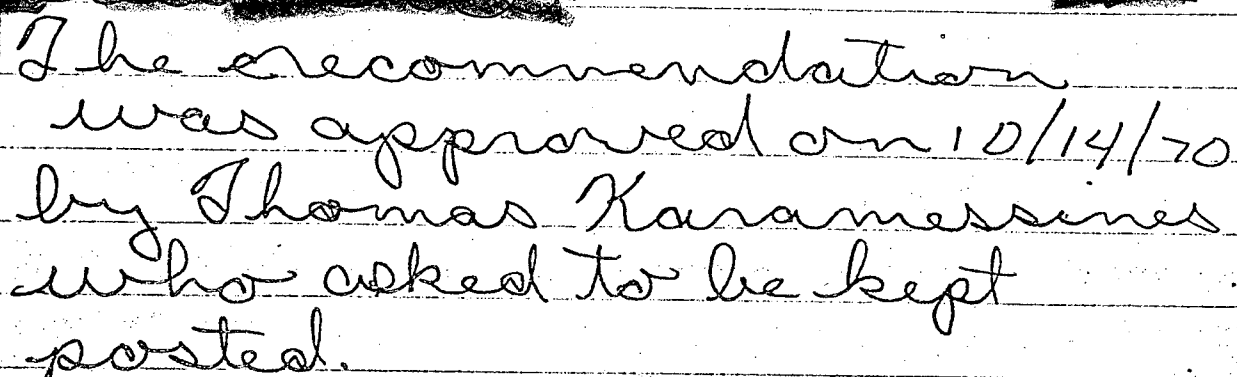 The recommendation
was approved on 10/14/70
by Thomas Karamessines
who asked to be kept
posted.